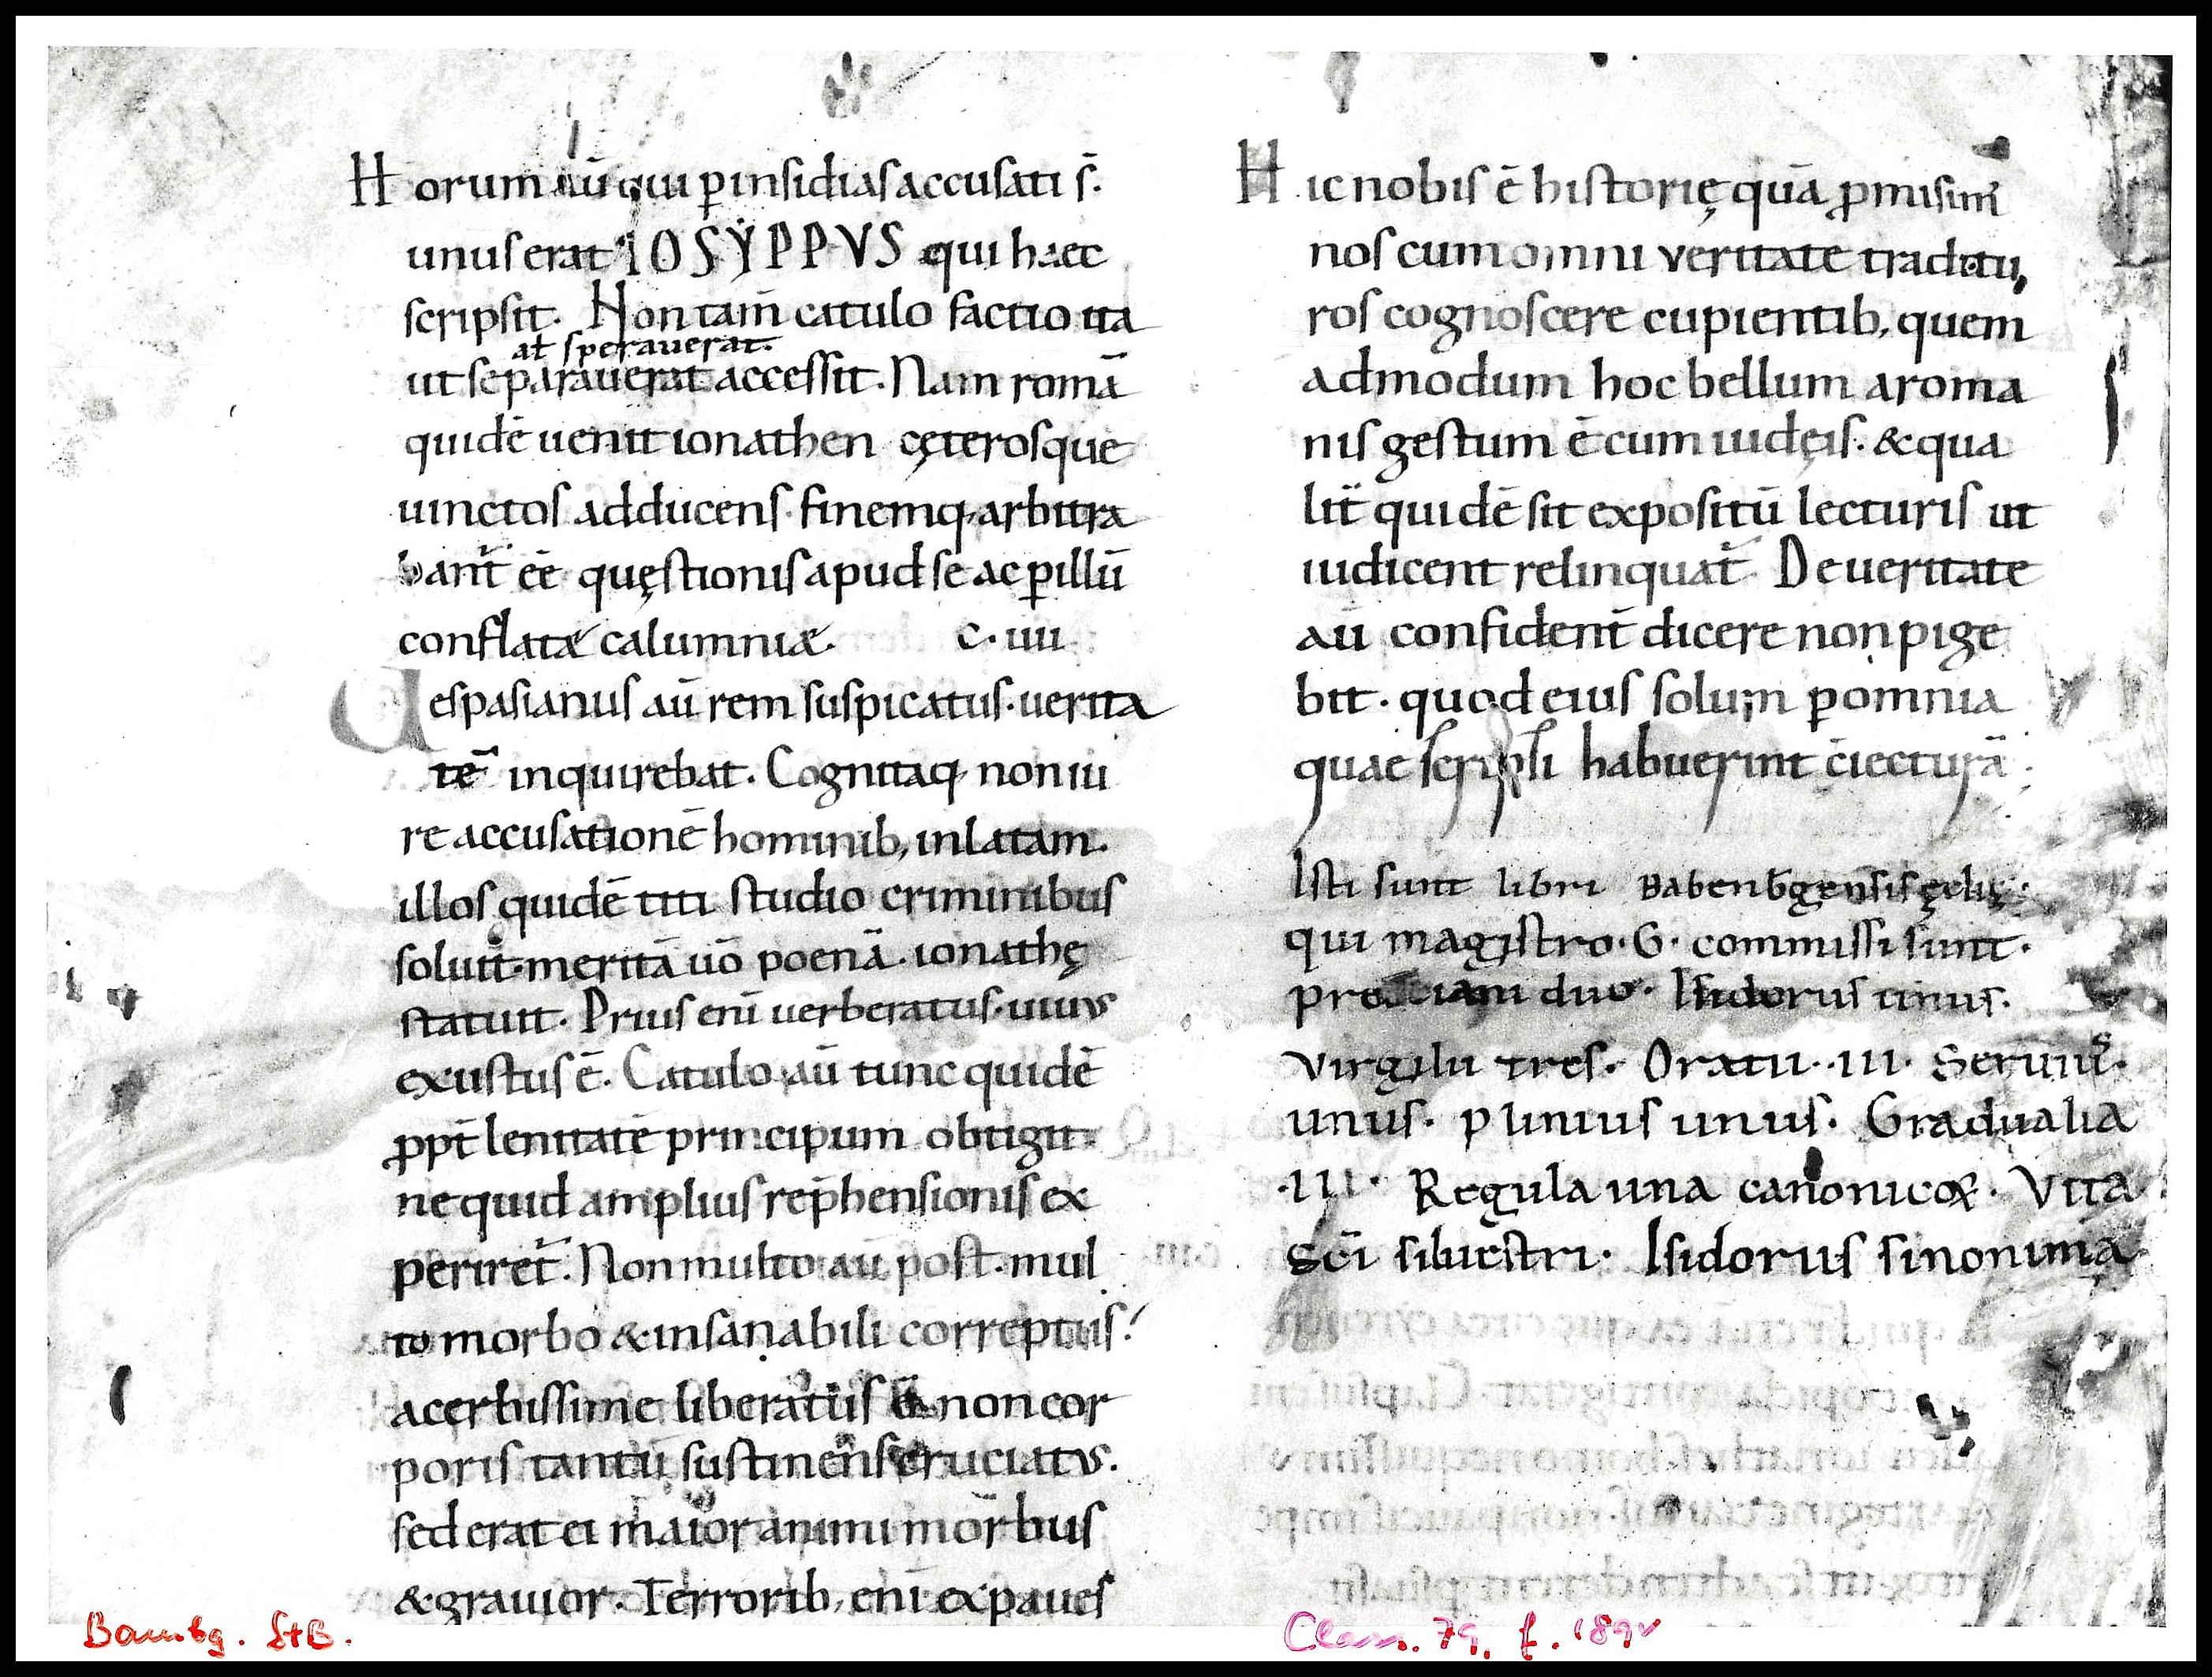 Horum aū qui p̲ insidias accusati s̄.
unus erat IOSYPPVS qui haec
scripsit. Non tam̄ catulo factio ita
at speraverat.
ut separauerat accessit. Nam romā
quidē uenit ionathen cęterosque
uinctos adducens. finemq; arbitra
bant̄ eē quęstionis apud se ac p̲ illū
conflatæ calumniæ. C. IIII
Uespasianus aū rem suspicatus. uerita
tē inquirebat. Cognitaq; non iu
re accusationē hominib; inlatam.
illos quidē titi studio criminibus
soluit. meritā uō poenā. ionathę
statuit. Prius enī uerberatus. uiuus
exustus ē. Catulo aū tunc quidē
ꝓpt̄ lenitatē principum obtigit.
ne quid amplius rep̄hensionis ex
periret̄. Non multo aū post. mul
to morbo & insanabili correptus.
acerbissime liberatus non cor
poris tantū sustinens cruciatus.
sed erat ei maior animi morbus
& grauior. Terrorib; enī expaues
Hic nobis ē historię quā ꝓmisim̄
nos cum omni veritate traditu
ros cognoscere cupientib; quem
admodum hoc bellum a roma
nis gestum ē cum iudęis. & qua
lit̄ quidē sit expositū lecturis ut
iudicent relinquat̄. De ueritate
aū confident̄ dicere non pige
bit. quod eius solum p̲ omnia
quae scripsi habuerint c̄iecturā.
Isti sunt libri Babenb̄gensis ęclię.
qui magistro. G. commissi sunt.
duo. Isidorus unus.
Virgilii tres. Oratii. III. Seruiꝰ.
unus. Plinius unus. Gradualia
.III. Regula una canonicoꝝ. Vita
Sc̄i siluestri. Isidorus sinonima
Bambg. StB.
Class. 79, f. 189v